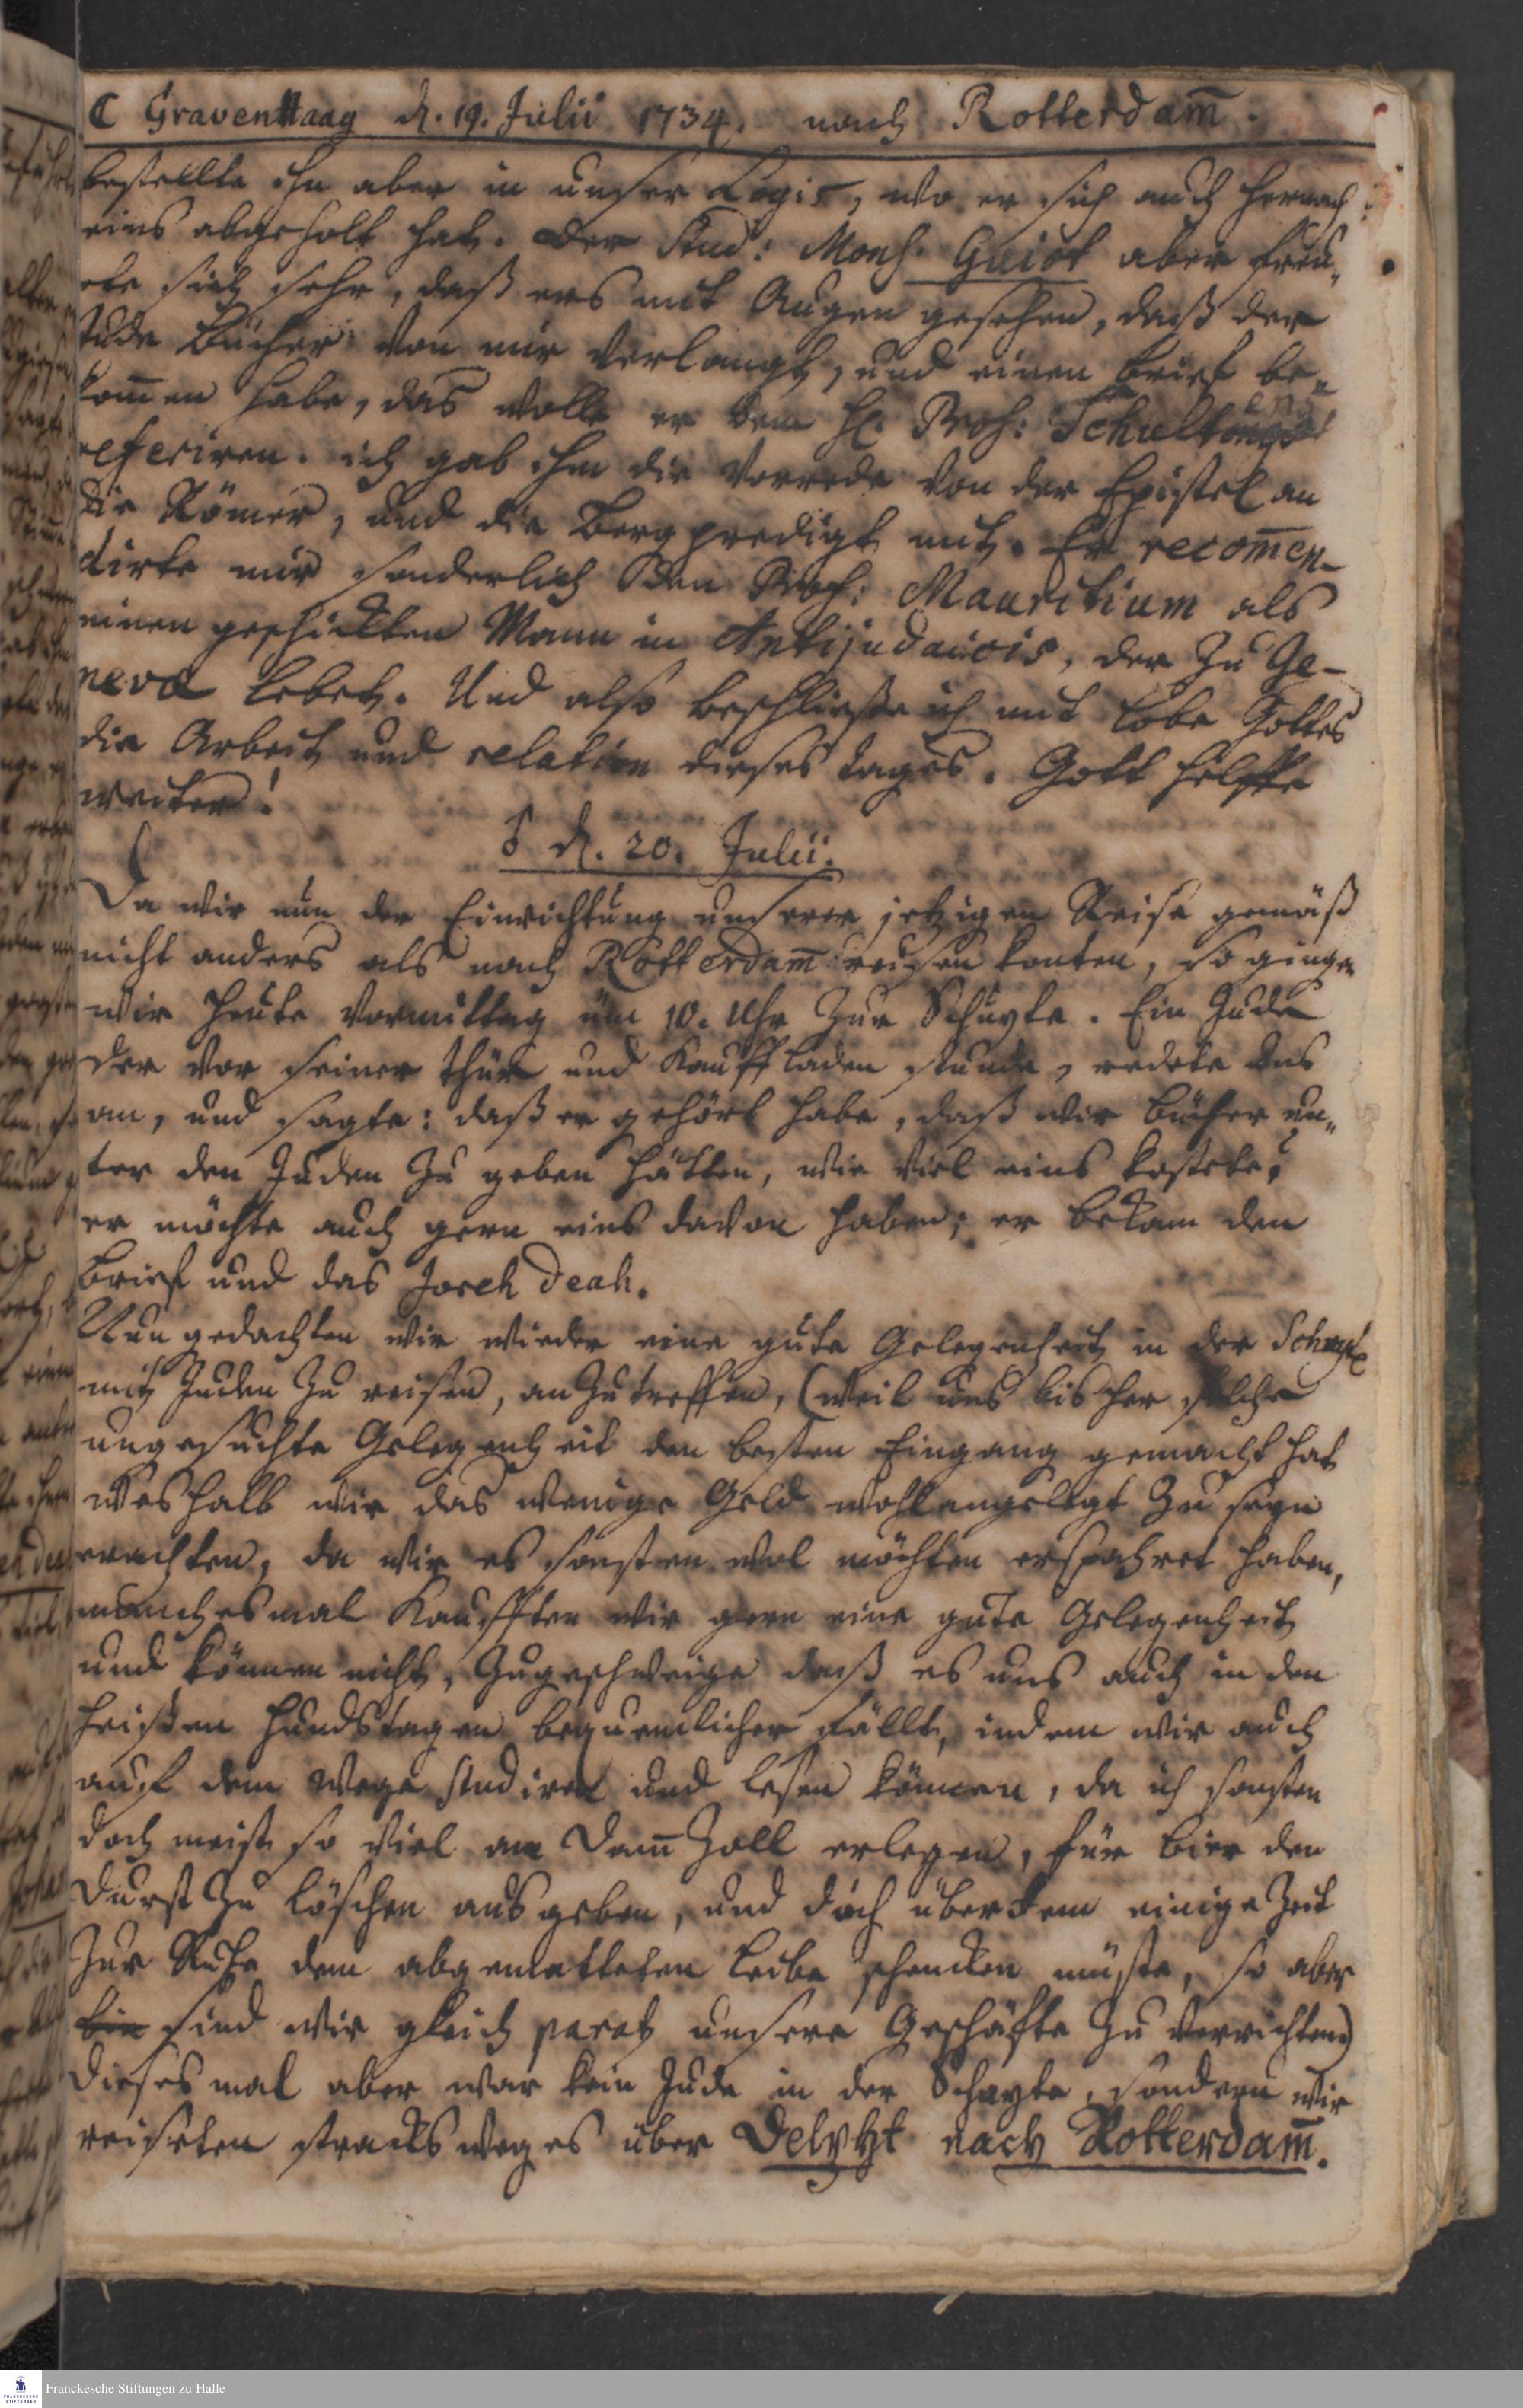 ☾ GravenHaag d. 19. Julii 1734. nach Rotterdam̅.
bestellte ihn aber in unser Logis, wo er sich auch hernach
eins abgeholt hat. Der Stud: Mons. Guiot aber freu„
ete sich sehr, daß ers mit Augen gesehen, daß der
Jude Bücher von mir verlangt, und einen Brief be„
kom̅en habe, das wolle er dem H. Prof: Schultens
referiren. ich gab ihm die Vorrede von der Epistel an
die Römer, und die Bergpredigt mit. Er recom̅en-
dirte mir sonderlich den Prof: Mauritium als
einen geschickten Mann in Antijudaicis, der zu Ge-
neva lebet. Und also beschließe ich mit Lobe Gottes
die Arbeit und relation dieses tages. Gott helffe
weiter!
♂ d. 20. Julii.
Da wir nun der Einrichtung unserer jetzigen Reise gemäß
nicht anders als nach Rotterdam̅ reisen konten, so gingen
wir heute Vormittag um 10. Uhr zur Schuyte. Ein Jude
der vor seiner thür und Kauffladen stunde, redete uns
an, und sagte: daß er gehört habe, daß wir bücher un„
ter den Juden zu geben hätten, wie viel eins kostete?
er möchte auch gern eins davon haben; er bekam den
Brief und das Joreh deah.
Nun gedachten wir wieder eine gute Gelegenheit in der Schuyte
mit Juden zu reisen, anzutreffen, (weil uns bisher solche
ungesuchte Gelegenheit den besten Eingang gemacht hat
weshalb wir das wenige Geld wohlangelegt zu seyn
erachten, da wir es sonsten wol möchten erspahret haben,
manchesmal Kaufften wir gern eine gute Gelegenheit
und können nicht, zugeschweige daß es uns auch in den
heißen Hundstagen bequemlicher fällt, indem wir auch
auf dem Wege studiren und lesen können, da ich sonsten
doch meist so viel an Dam̅ Zoll erlegen, für bier den
Durst zu löschen ausgeben, und doch überdem einige Zeit
zur Ruhe dem abgematteten Leibe schencken müste, so aber
bin sind wir gleich parat unsere Geschäfte zu verrichten)
Dieses mal aber war kein Jude in der Schuyte, sondern wir
reiseten stracks weges über Delpht nach Rotterdam̅.
Franckesche Stiftungen zu Halle